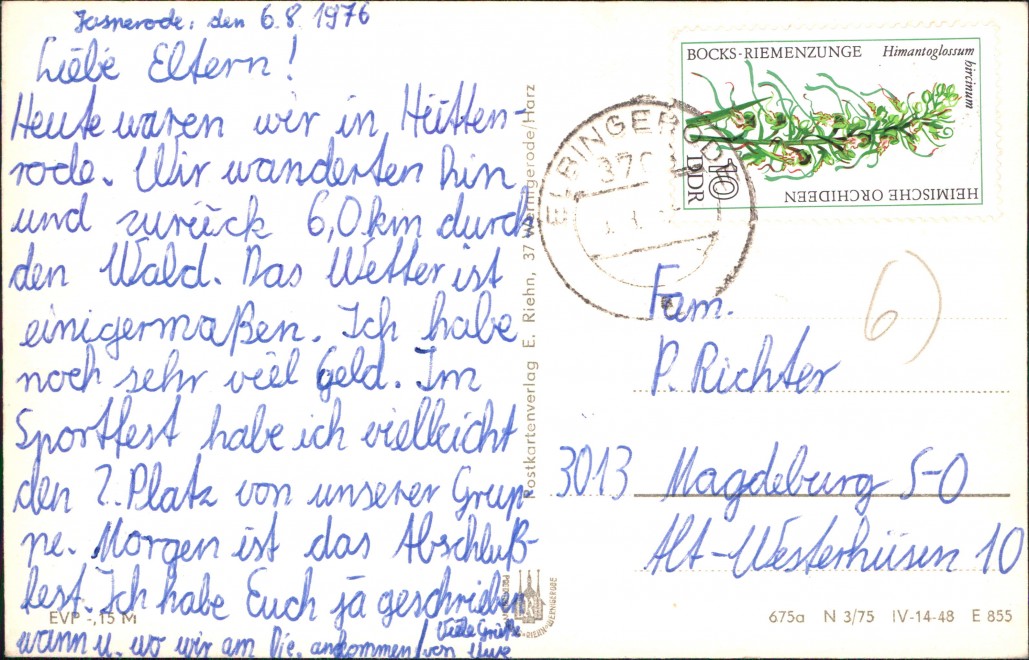 Jasnerode: den 6.8.1976
Liebe Eltern!
Heute waren wir in Hütten-
rode. Wir wanderten hin
und zurück 6,0 km durch
den Wald. Das Wetter ist
einigermaßen. Ich habe
noch sehr viel Geld. Im
Sportfest habe ich vielleicht
den 2. Platz von unserer Grup-
pe. Morgen ist das Abschluß-
fest. Ich habe Euch ja geschrieben
wann u. wo wir am Die. ankommen/
Viele Grüße
von Uwe
EVP -,15 M
Postkartenverlag E. Riehn, 37 Wernigerode/Harz
BOCKS-RIEMENZUNGE Himantoglossum
hircinum
HEIMISCHE ORCHIDEEN
10
DDR
ELBINGERODE
6)
Fam.
P. Richter
3013 Magdeburg S-O
Alt-Westerhüsen 10
675a N 3/75 IV-14-48 E 855